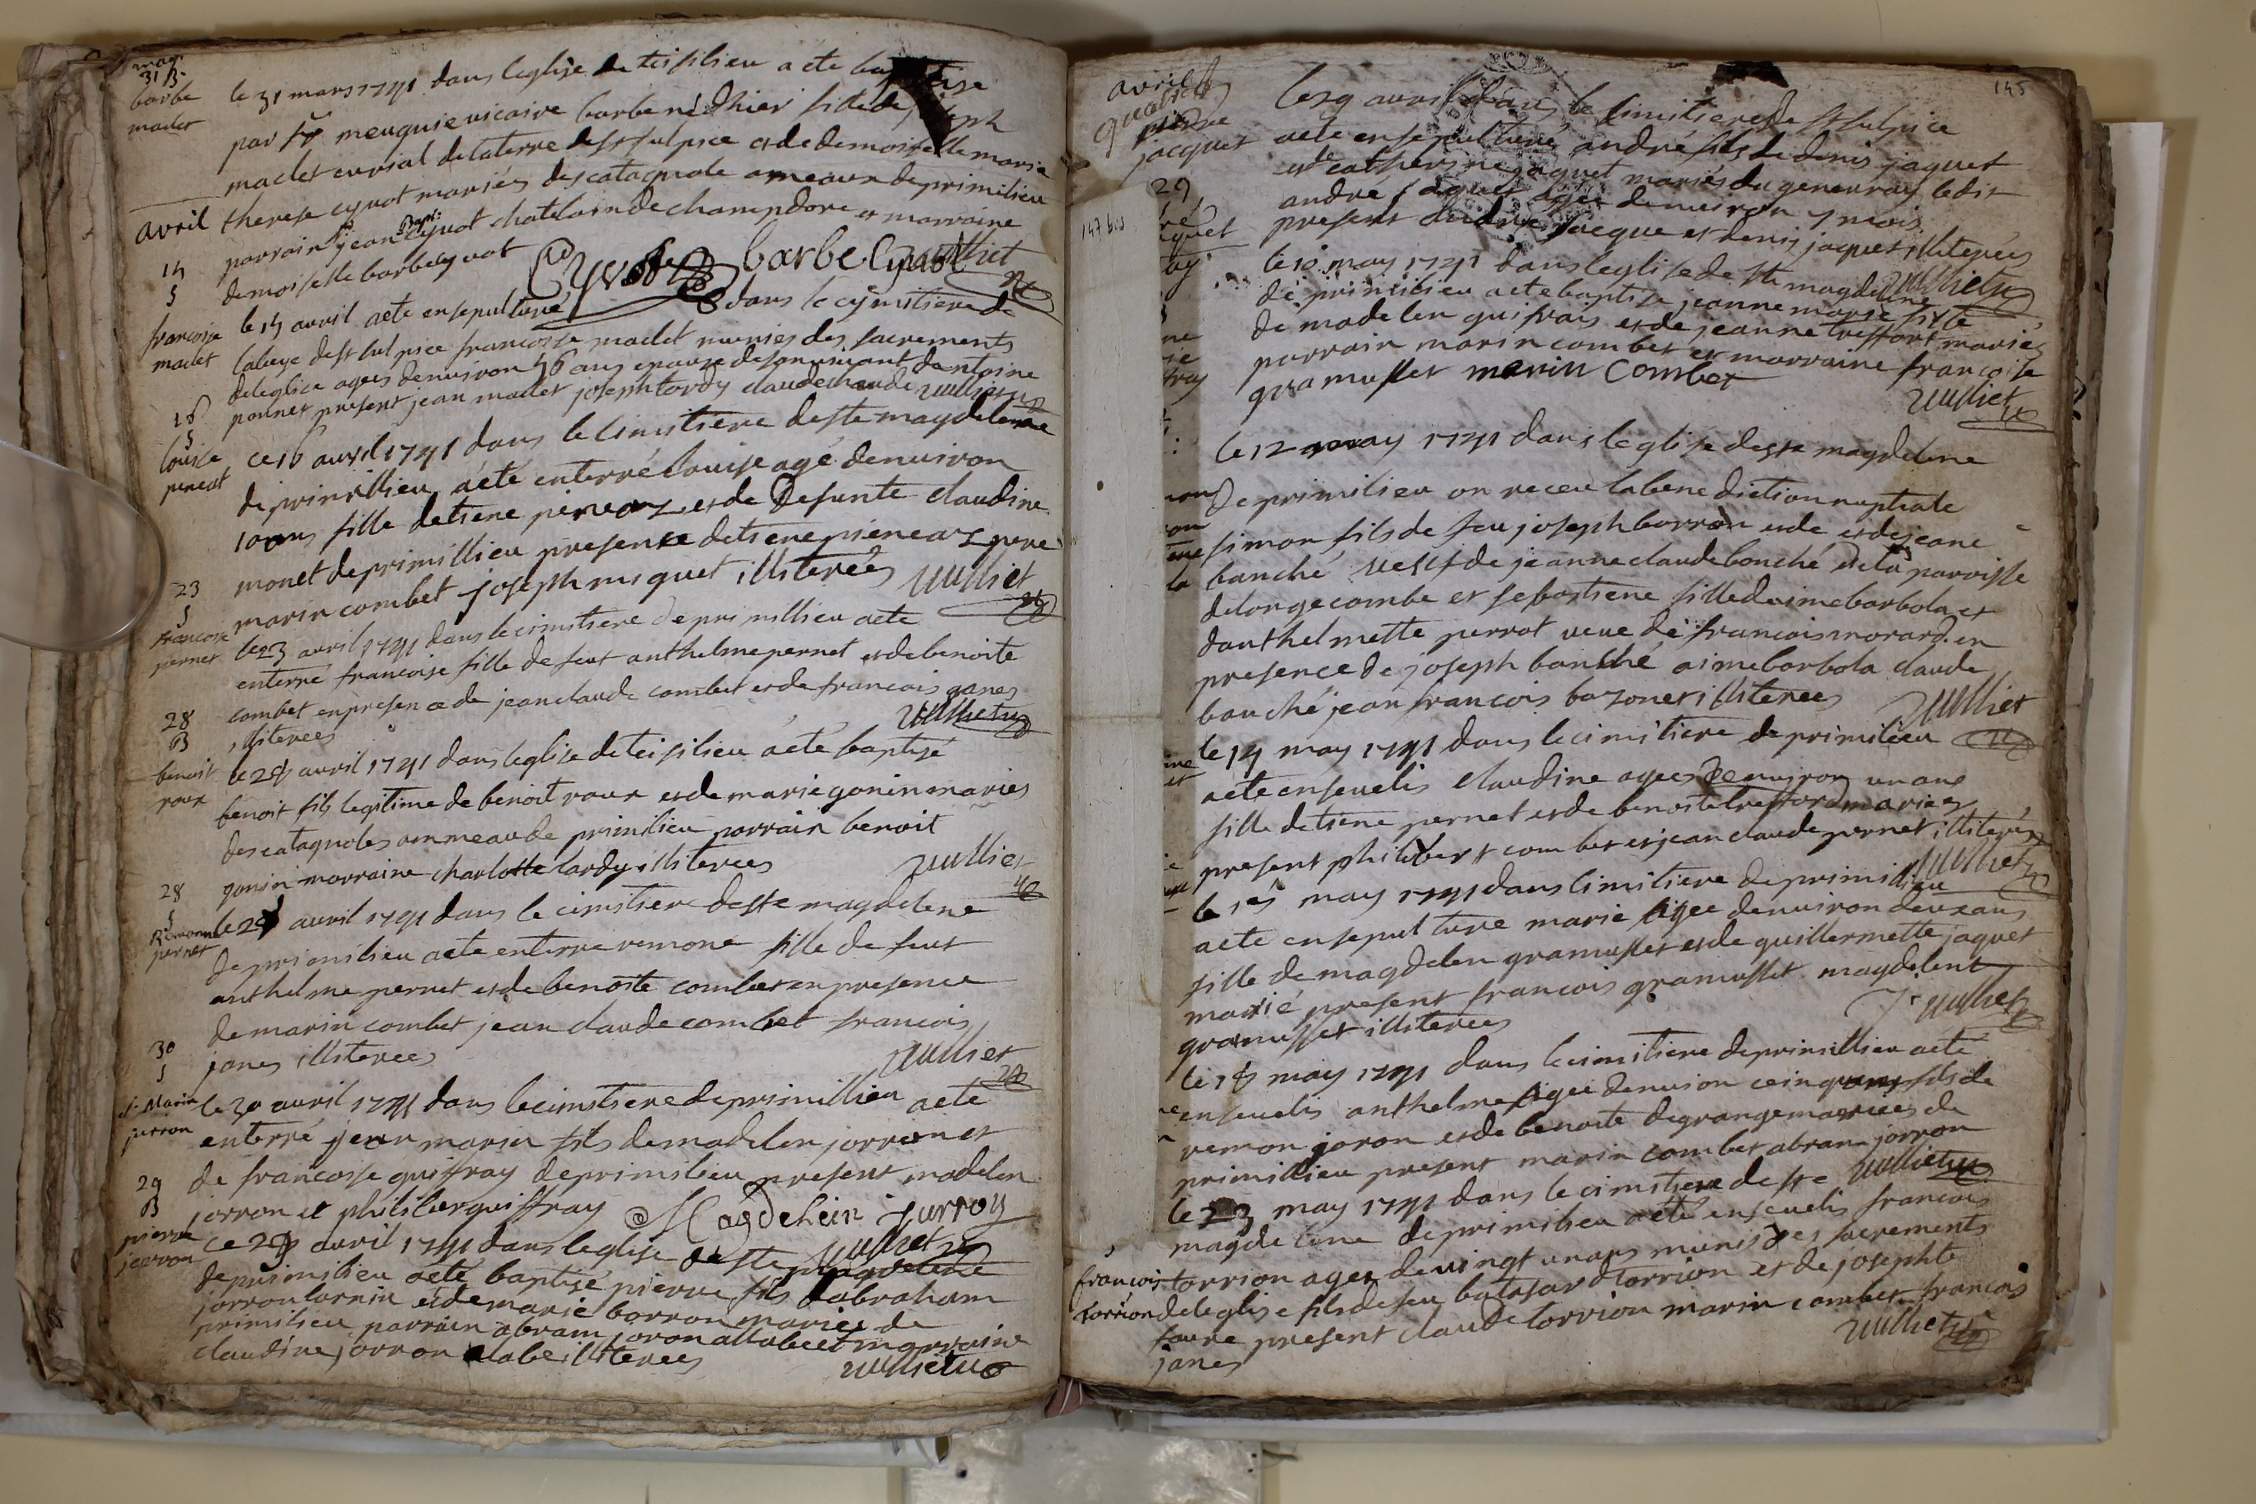 mars
31 B
barbe
maclet
le 31 mars 1741 dans leglise de teisilieu a ete baptise
par sr meuguie vicaire barbe né dhier fille de joseph
maclet curial de laterre de st sulpice et de demoiselle marie
therese cyvot mariés des catagnole ameaux de primilieu
parrain sr jean bapt: cyvot chatelain de champdore et marraine
demoiselle barbe cyvot
Cyvot barbe Cyvot vulliet
avril
14
S
francoise
maclet
le 14 avril aete ensepulturé dans le cymitiere de
labeye de st sulpice francoise maclet munies des sacrements
de leglise agees denuiron 46 ans epouze de son vivant dantoine
ponnet present jean maclet joseph tardy claude vulliet
16
S
louise
peneat
ce 16 avril 1741 dans le cimitiere de ste magdeleine
de primillieu aété enterré louise agé denuiron
10 ans fille detiene et de defunte claudine
monet de primillieu presence detiene pere
marin combet joseph miquet illiterées vulliet
23
S
francoise
pernet
le 23 avril 1741 dans le cimitiere de primillieu aete
enterré francoise fille de feut anthelme pernet et de benoite
combet en presence de jean claude combet et de francois janes
illiterees vulliet
28
B
benoit
roux
le 28 avril 1741 dans leglise de teisilieu aété baptisé
benoit fils legitime de benoit roux et de marie gonin mariés
des catagnoles ammeau de primilieu parrain benoit
gonin marraine charlotte tardy illiterees vulliet
28
S
Remonne
pernet
le 28 avril 1741 dans le cimitiere de ste magdelene
de primilieu aete enterre remone fille de feut
anthelme pernet et de benoite combet en presence
de marin combet jean claude combet francois
janes illiterees vulliet
30
S
j. Marin
jorron
le 30 avril 1741 dans le cimitiere de primillieu aeté
enterré jean marin fils de madelen jorron et
de francoise guiffray de primilieu present madelen
jorron et philiber guiffray Magdelein jurron
vulliet
29
B
pierre
jorron
ce 29 avril 1741 dans leglise de ste magdelene
de primilieu aété baptisé pierre fils dabraham
jorron larnin et de marie borron mariés de
primilieu parrain abram joron allabe et marraine
claudine jorron alabe illiterees vulliet
145
avril
jacquet
le 29 avril dans le cimitiere de st sulpice
aete ensepulturé andré fils de denis jaquet
et de catherine jaquet mariés du genevray ledit
andre jaquet agé denuiron 7 mois
present andre jacque et denis jaquet illiterées
vulliet
29
147 bis
le 10 may 1741 dans leglise de ste magdelene
de primilieu aete baptise jeanne marie fille
de madelen guifrais et de jeanne treffort mariés
parrain marin combet et marraine francoise
gramusset marin Combet
vulliet
le 12 may 1741 dans leglise de ste magdelene
de primilieu on receu la benediction nuptiale
simon fils de feu joseph borron et de et de jeane
banché veuf de jeanne claude bonché de la paroisse
de longecombe et sebastiene fille daime barbola et
danthelmette perrot veue de francois morard en
presence de joseph banché aime barbola claude
bauché jean francois bazonet illiterees vulliet
le 14 may 1741 dans le cimitiere de primilieu
aete enseuelis claudine agees denuiron un ans
fille detiene pernet et de benoite treffort mariées
present philibert combet et jean claude pernet illiterées
vulliet
le 15 may 1741 dans cimitiere de primilieu
aete ensepulture marie agee denuiron deux ans
fille de magdelen gramusset et de guillermette jaquet
marié present francois gramusset magdelent
gramusset illiterees vulliet
le 18 may 1741 dans le cimitiere de primillieu aeté
enseuelis anthelme agee denuion ceinq ans fils de
remon joron et de benoite degrange mariees de
primillieu present marin combet abram jorron
vulliet
le 23 may 1741 dans le cimitiere de ste
magdelene de primilieu aété enseuelis francois
torrion agez de vingt un ans munis des sacrements
de leglise fils de feu batasard torrion et de josephte
faure present claude torrion marin combet francois
janes vulliet
francois
torrion